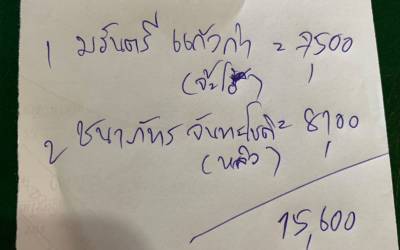 1 มรันตรี แก้วกำ = 7,500
2 ชนาภัทร จันทะโชติ = 8,100
(หลิว)
15,600